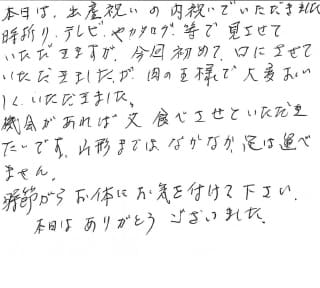 本日は、出産祝いの内祝いでいただきました
時折り、テレビやカタログ等で見させて
いただきますが、今回初めて、口にさせて
いただきましたが肉の王様で大変おい
しくいただきました。
機会があれば又食べさせていただき
たいです。山形までは、なかなか、足は運べ
ません。
時節がらお体にお気を付けて下さい。
本日はありがとうございました。